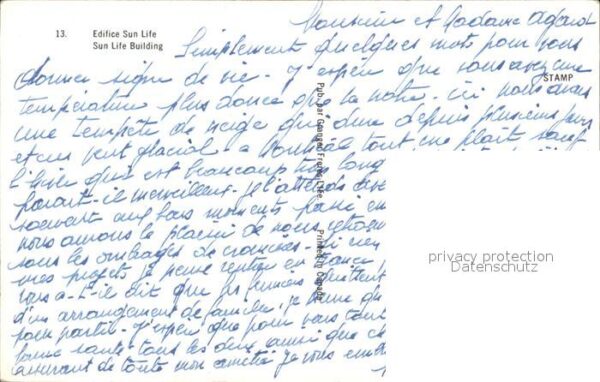 13. Edifice Sun Life
Sun Life Building
STAMP
Monsieur et Madame Agard
Simplement quelques mots pour vous
donner signe de vie. J'espère que vous avez une
température plus douce que la notre. ici nous avons
une tempête de neige qui dure depuis plusieurs jours
et un vent glacial. a Montréal tout me plait sauf
l'hiver qui est beaucoup très long
parait-il merveilleux. Je
souvent aux bons moments passé en
nous aurons le plaisir de nous
sous les ombrages de
mes projets je pense rentrer en France
vous a-t-il dit que
d'un arrangement de famille. je
pour partir. J'espère que pour vous tout
bonne santé tous les deux ainsi que
assurant de toute mon amitié je vous
Pub. par
Printed in Canada
privacy protection
Datenschutz